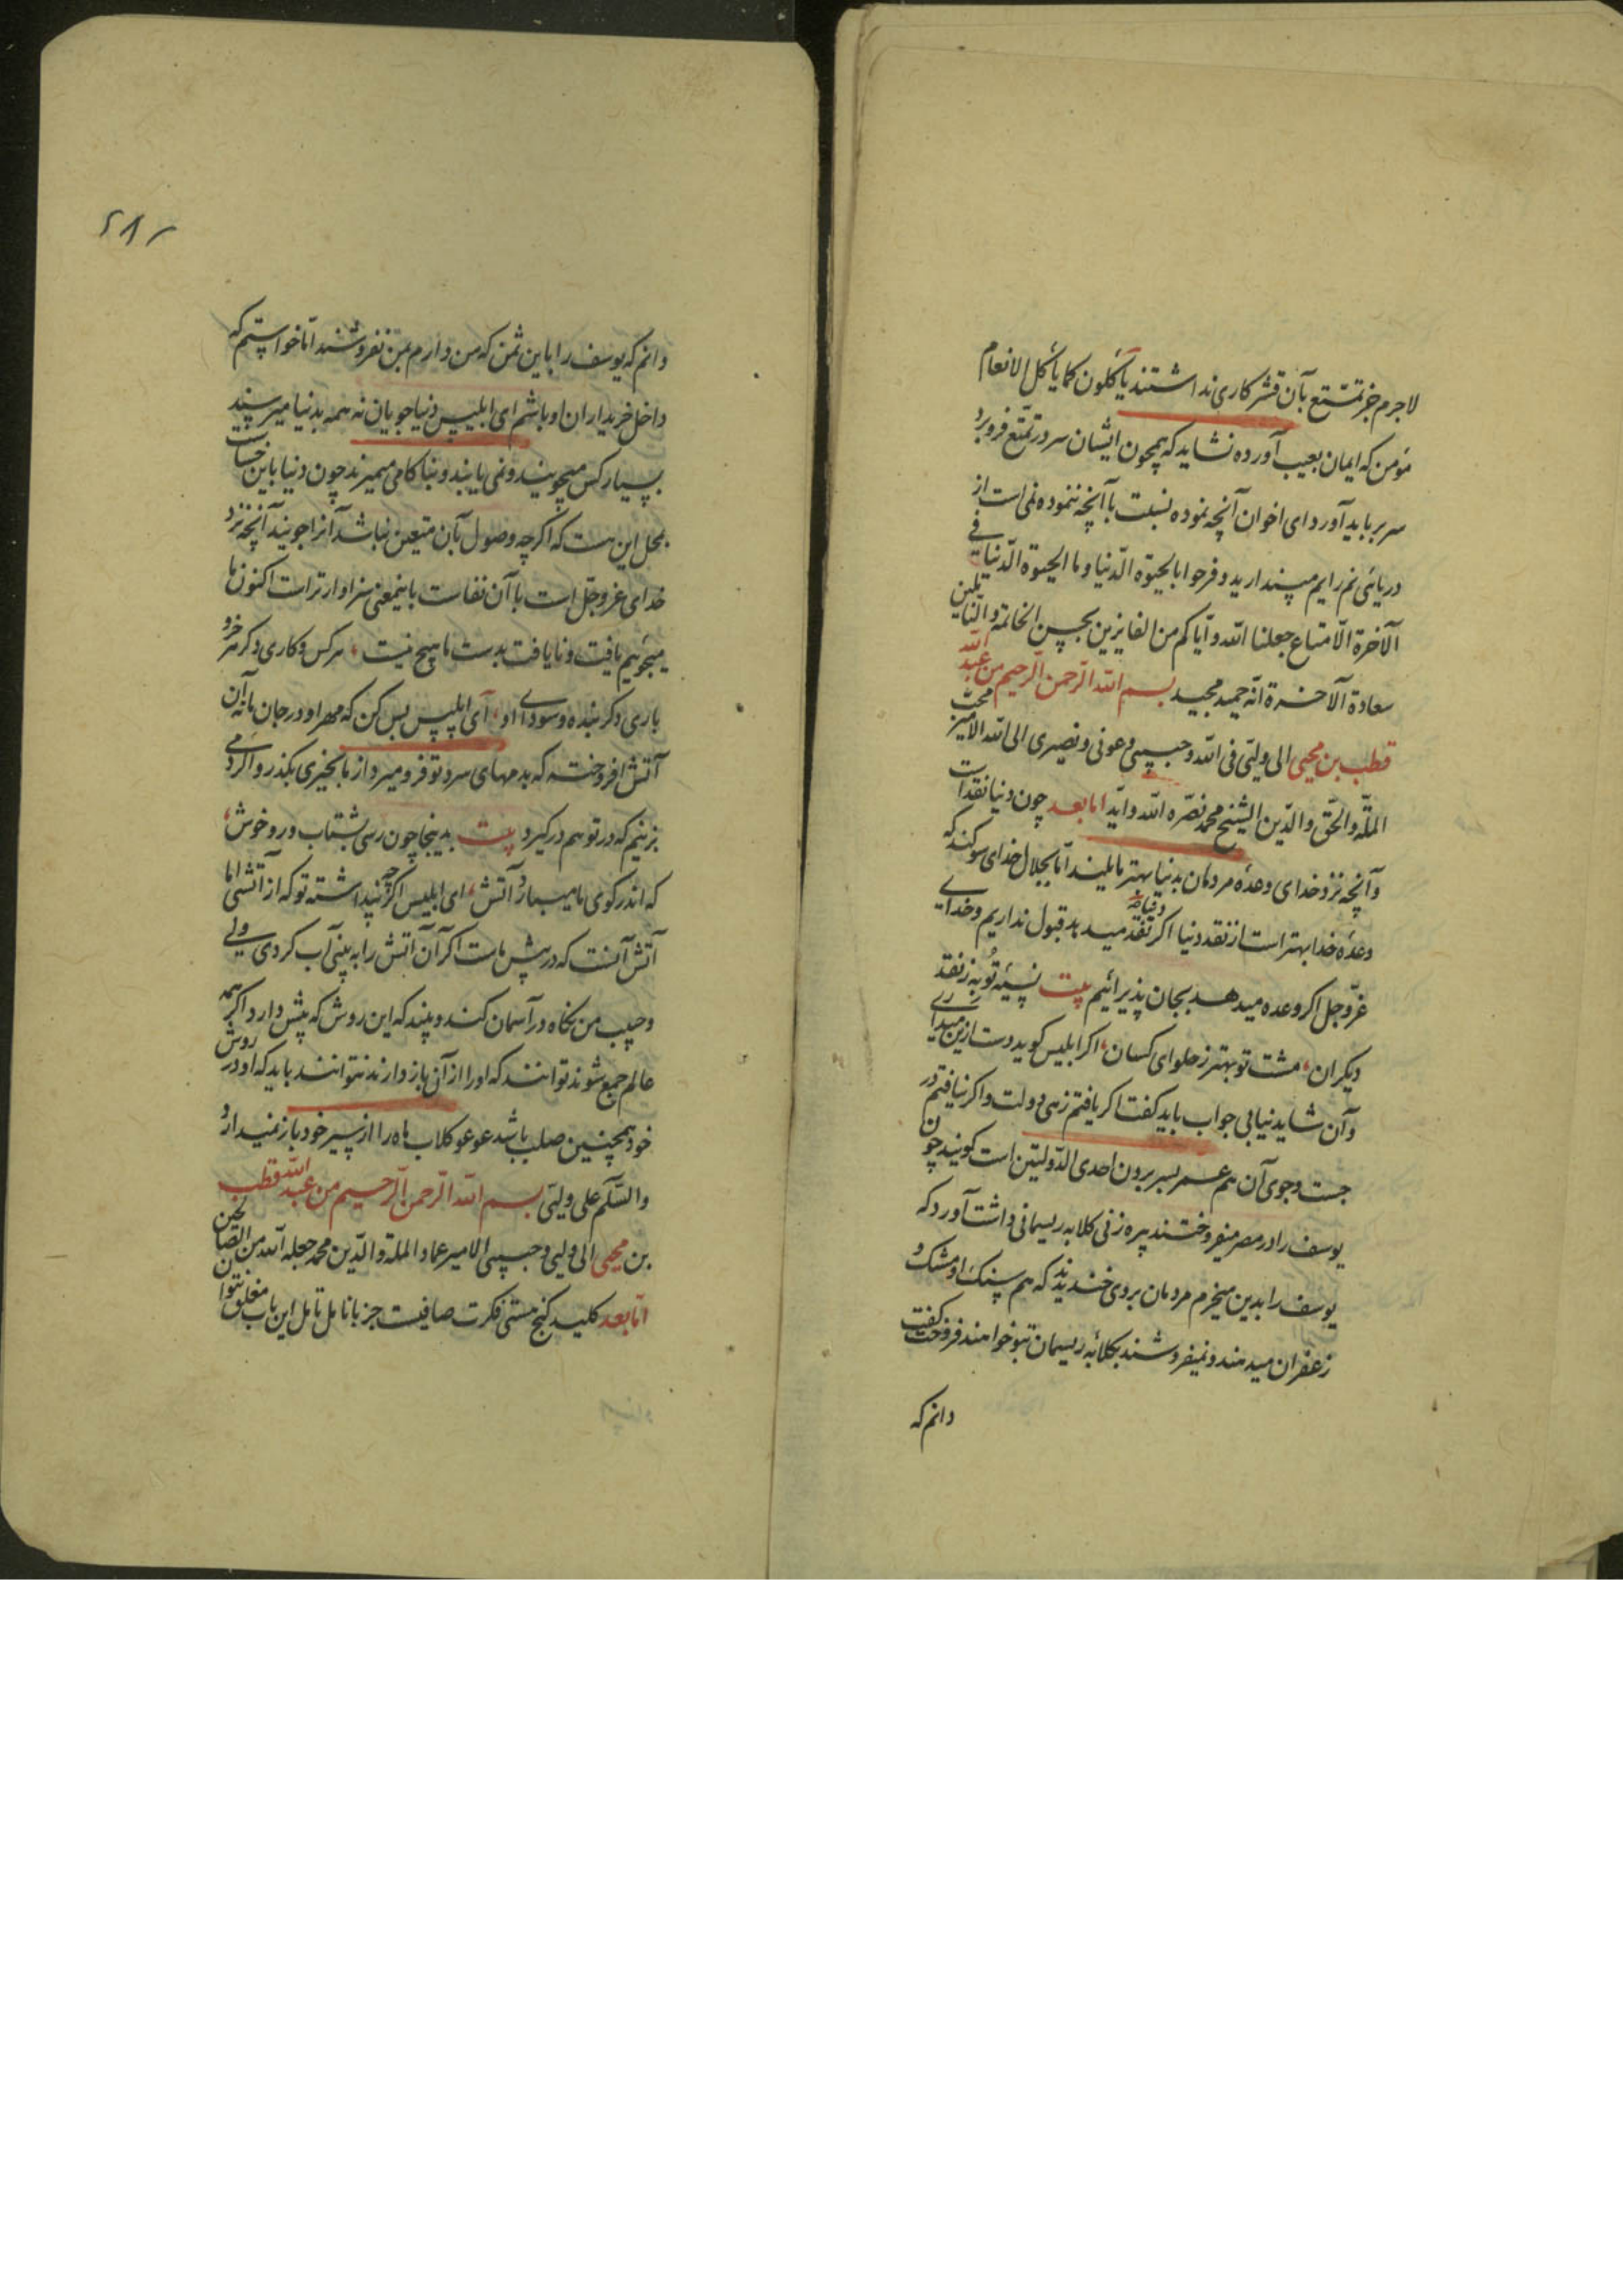 لاجرم جز تمتّع بآن قشر کاری نداشتند یأکلون کما یأکل الانعام
مؤمن که ایمان بغیب آورده نشاید که همچون ایشان سر در تمتّع فرو برد
سر برباید آورد ای اخوان آنچه نموده نسبت باآنچه ننموده نمی است از
دریائی نم رایم مپندارید وفرحوا بالحیوة الدّنیا وما الحیوة الدّنیا فی
الآخرة الّا متاع جعلنا الله وایّاکم من الفایزین بحسن الخاتمة والنایلین
سعادة الآخرة انّه حمید مجید بسم الله الرّحمن الرّحیم من عبد الله
قطب بن محیی الی ولیّی فی الله وحبیبی وعونی ونصیری الی الله الامیر محبّ
الملّة والحقّ والدّین الشیخ محمد نصّره الله وایّد امابعد چون دنیا نقدست
وآنچه نزد خدای وعده مردمان بدنیا بهتر مایلیند امّا بجلال خدای سوگند که
وعدهٔ خدا بهتر است از نقد دنیا اکر نقد میدهد قبول نداریم وخدای
عزّوجل اکر وعده میدهد بجان پذیرائیم بیت نسیئه تو به ز نقد
دیکران، مشت تو بهتر ز حلوای کسان، اکر ابلیس کوید دست ازین میداری
وآن شاید نیابی جواب باید کفت اکر یافتم زهی دولت واکر نیافتم در
جست وجوی آن هم عمر بسر بردن احدی الدّولتین است کویند چون
یوسف را در مصر میفروختند پیره زنی کلابه ریسمانی داشت آورد که
یوسف را بدین میخرم مردمان بروی خندیدند که هم سنک او مشک و
زعفران میدهند ونمیفروشند بکلابه ریسمان بتو خواهند فروخت کفت
دانم که
۲۸۲
دانم که یوسف را باین ثمن که من دارم بمن نفروشند امّا خواستم که
داخل خریداران او باشم ای ابلیس دنیا جویان نه همه بدنیا میرسند
بسیار کس میجویند ونمی یابند وبناکامی میمیرند چون دنیا باین خساست
بمحل این هست که اکرچه وصول بآن متیقن نباشد آنرا جویند آنچه نزد
خدای عزّوجلّ است باآن نفاست باینمعنی سزاوارتر است اکنون ما
میجوئیم یافت ونایافت بدست ما هیچ نیست، هرکس وکاری دکر هر خر و
باری دکر بنده وسودای او، ای ابلیس بس کن که مهر او در جان ما نه آن
آتش افروخته که بدمهای سرد تو فرو میرد از ما بخیری بکذر واکر دمی
بزنیم که در تو هم درکیرد بیت بدینجا چون رسی بشتاب ورو خوش،
که اندر کوی ما میبارد آتش، ای ابلیس اکرچه پنداشته تو که از آتشی اما
آتش آنست که در پیش ماست اکر آن آتش را به بینی آب کردی ولی
وحبیب من نکاه در آسمان کند وبیند که این روش که پیش دارد اکر همه
عالم جمع شوند توانند که او را از آن بازدارند نتوانند باید که او در روش
خود همچنین صلب باشد عوعو کلاب ماه را از سیر خود باز نمیدارد
والسّلم علی ولیّی بسم الله الرّحمن الرّحیم من عبد الله قطب
بن محیی الی ولیی وحبیبی الامیر عماد الملة والدّین محمد جعله الله من الصّالحین
امّابعد کلید کنج هستی فکرت صافیست جز بانامل تأمل این باب مغلق نتوان